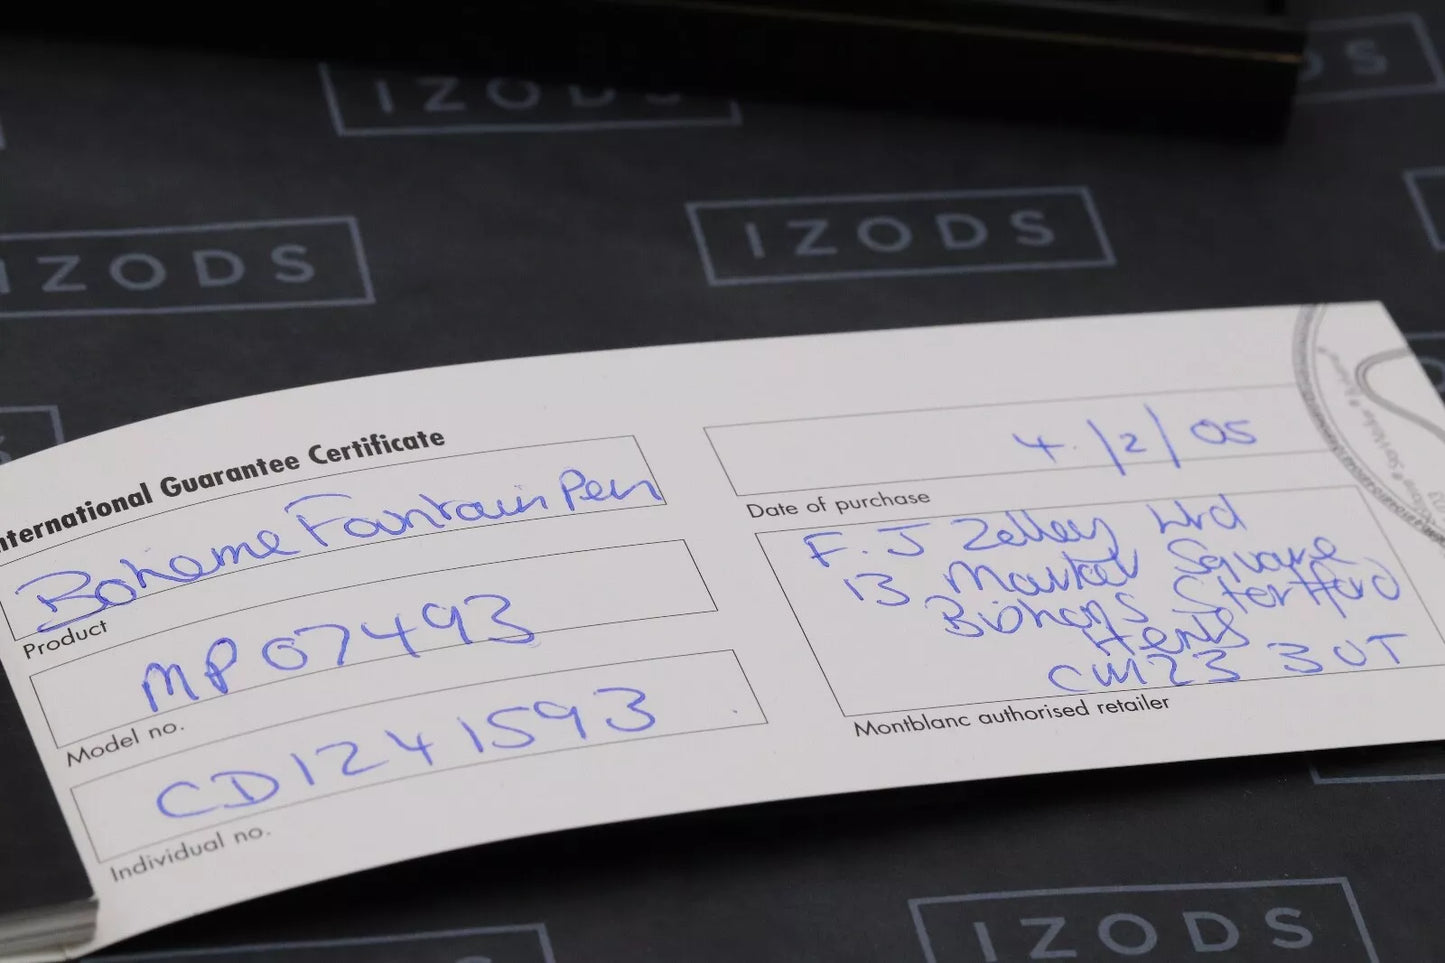 IZODS
DS
IZODS
IZODS
International Guarantee Certificate
Boheme Fountain Pen
Product
MP 07493
Model no.
CD1241593
Individual no.
4./2/05
Date of purchase
F.J Zelley Ltd
13 Market Square
Bishops Stortford
Herts
CM23 3UT
Montblanc authorised retailer
IZODS